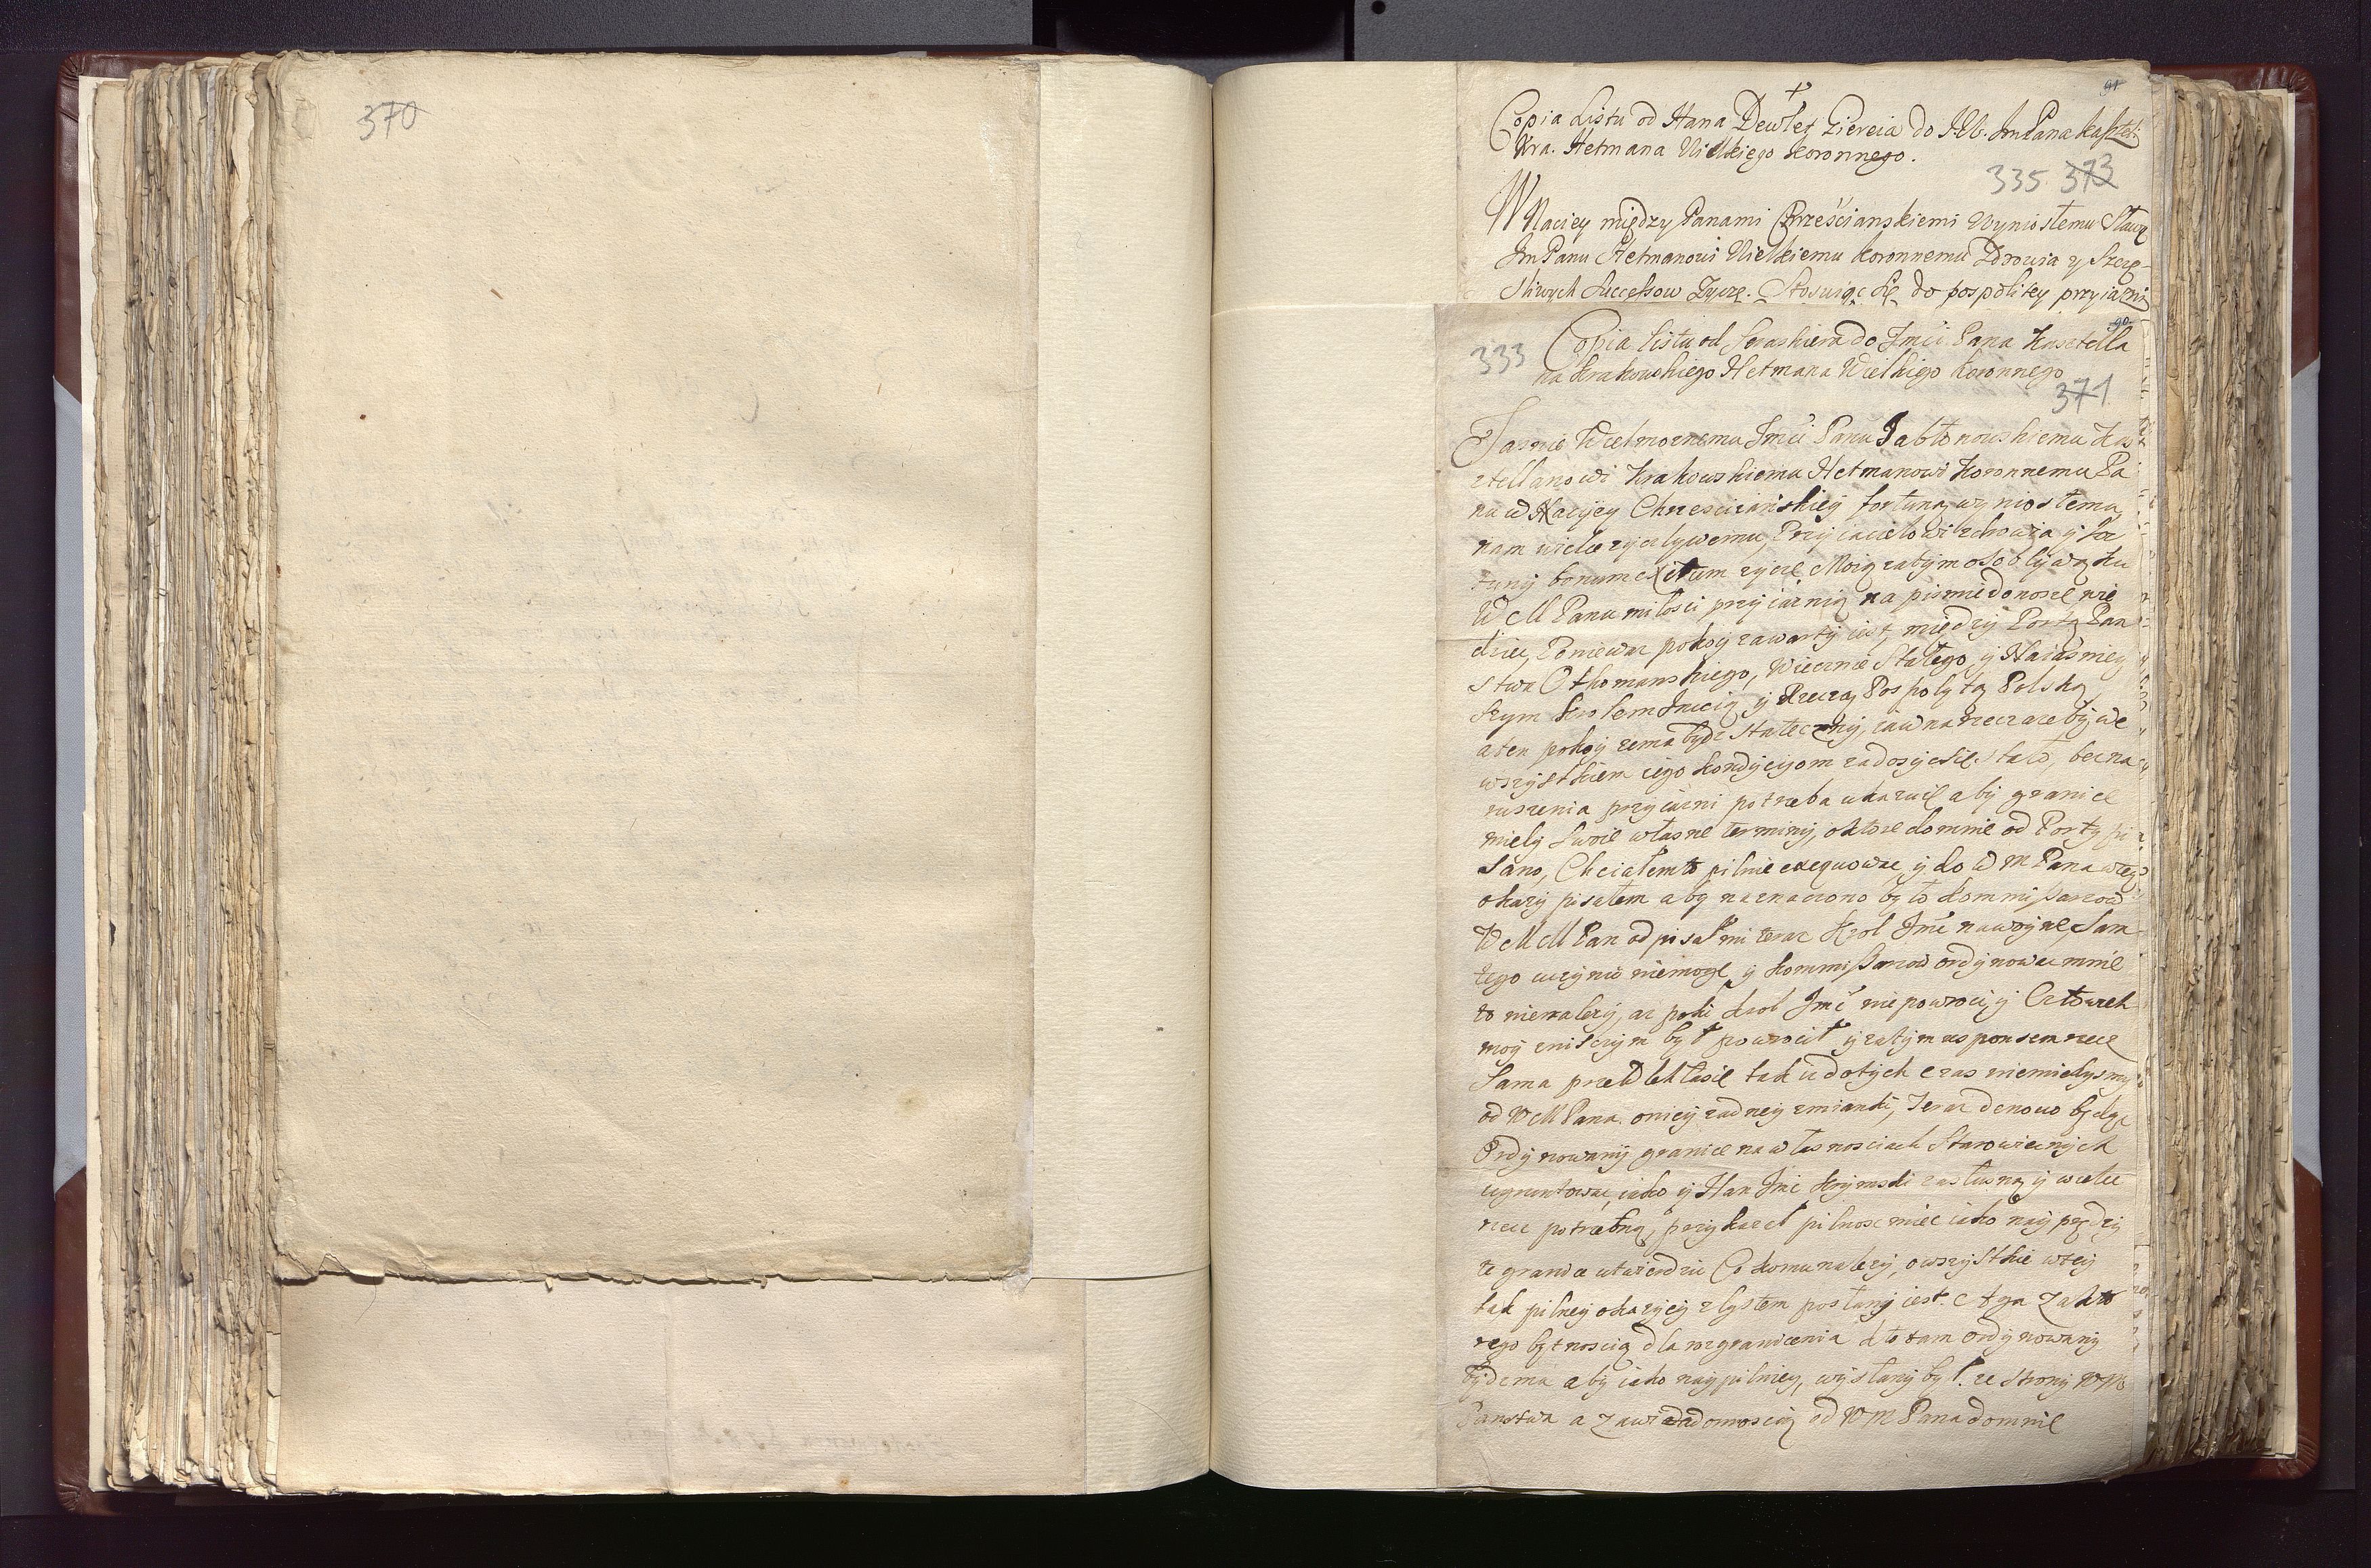 370
91
+
Copia Listu od Hana Dewlet Giereia do JW. Jm Pana Kasztel:
Kra. Hetmana Wielkiego Koronnego.
335 373
W Naciey między Panami Chrześcianskiemi Wyniosłemu Sławą
Jm Panu Hetmanowi Wielkiemu Koronnemu Zdrowia y Szczę-
sliwych Successow Zyczę. Stosuiąc się do pospolitey przyiazni
90.
333
Copia listu od Seraskiera do Jmci Pana Kasztella
na Krakowskiego Hetmana Wielkiego Koronnego
371
Jasnie Wielmoznemu Jmci Panu Jabłonowskiemu Kas
ztellanowi Krakowskiemu Hetmanowi Koronnemu Pa
nu w Nacijey Chrzescianskiey fortuną wyniosłemu
nam wielce zyczlywemu, Przyiacielowi zdrowia y for
tuny bonum exitum zycze Moią zatym osobliwą ku
W M Panu miłosci przyiaznią na pismie donosze wie
dziec, Poniewaz pokoy zawarty iest, między Portą Pan
stwa Othomanskiego, Wiecznie Stałego, y Naiasniey
szym Krolem Jmcią y Rzeczą Pospolytą Polską,
a ten pokoy zema bydz stateczny, iawna rzecz ze by we
wszystkiem iego kondycyom zadosyc sie stało, bez na
ruszenia przyiazni potrzeba ukazuie aby granice
miely swoie własne terminy, o ktore do mnie od Porty pi
sano, Chciałem to pilnie exequowac y do W M Pana w tey
okazy pisałem aby naznaczono było Kommissarzow
W M M Pan odpisał mi teraz Krol Jmć na woynie, Sam
tego uczynic niemoge y Kommissarzow ordynowac mnie
to nienalezy, az poki Krol Jmć nie powroci y Człowiek
moy zniszczym był powrocił y zatym responsem rzecz
sama przewlekłasie tak iz dotych czas niemielysmy
od W M Pana o niey zadney zmianki, Teraz denouo będąc
Ordynowany granice na własnosciach Starowiecznych
ugruntowac, iako y Han Jmc Krymski zas własną y wielce
rzecz potrzebną, przykazał pilnosc miec iako nayprędzy
te granice utwierdzic Co komu nalezy, o wszystkie w tey
tak pilney okazyey z lystem posłany iest Aga z akto
rego bytnoscią dla rozgraniczenia kto tam ordynowany
bydz ma aby iako naypilniey, wysłany był ze strony W M
Panstwa a z awiadomoscią od W M Pana do mnie